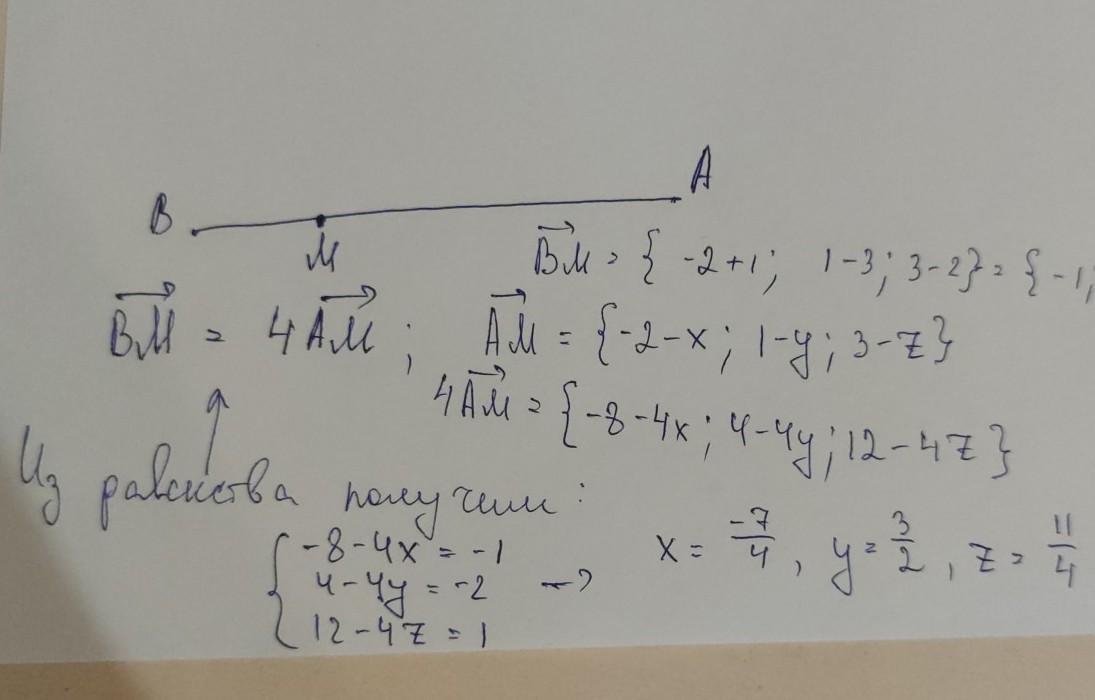 B
A
M
BM⃗ = { -2+1; 1-3; 3-2} = { -1;
BM⃗ = 4AM⃗ ; AM⃗ = {-2-x; 1-y; 3-z}
4AM⃗ = {-8-4x; 4-4y; 12-4z}
Из равенства получим:
{ -8-4x = -1
4-4y = -2 → x = -7/4, y = 3/2, z = 11/4
12-4z = 1